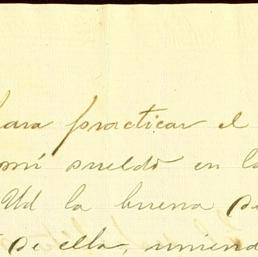 para practicar el
mi sueldo en la
Ud la buena
de ella, uniend